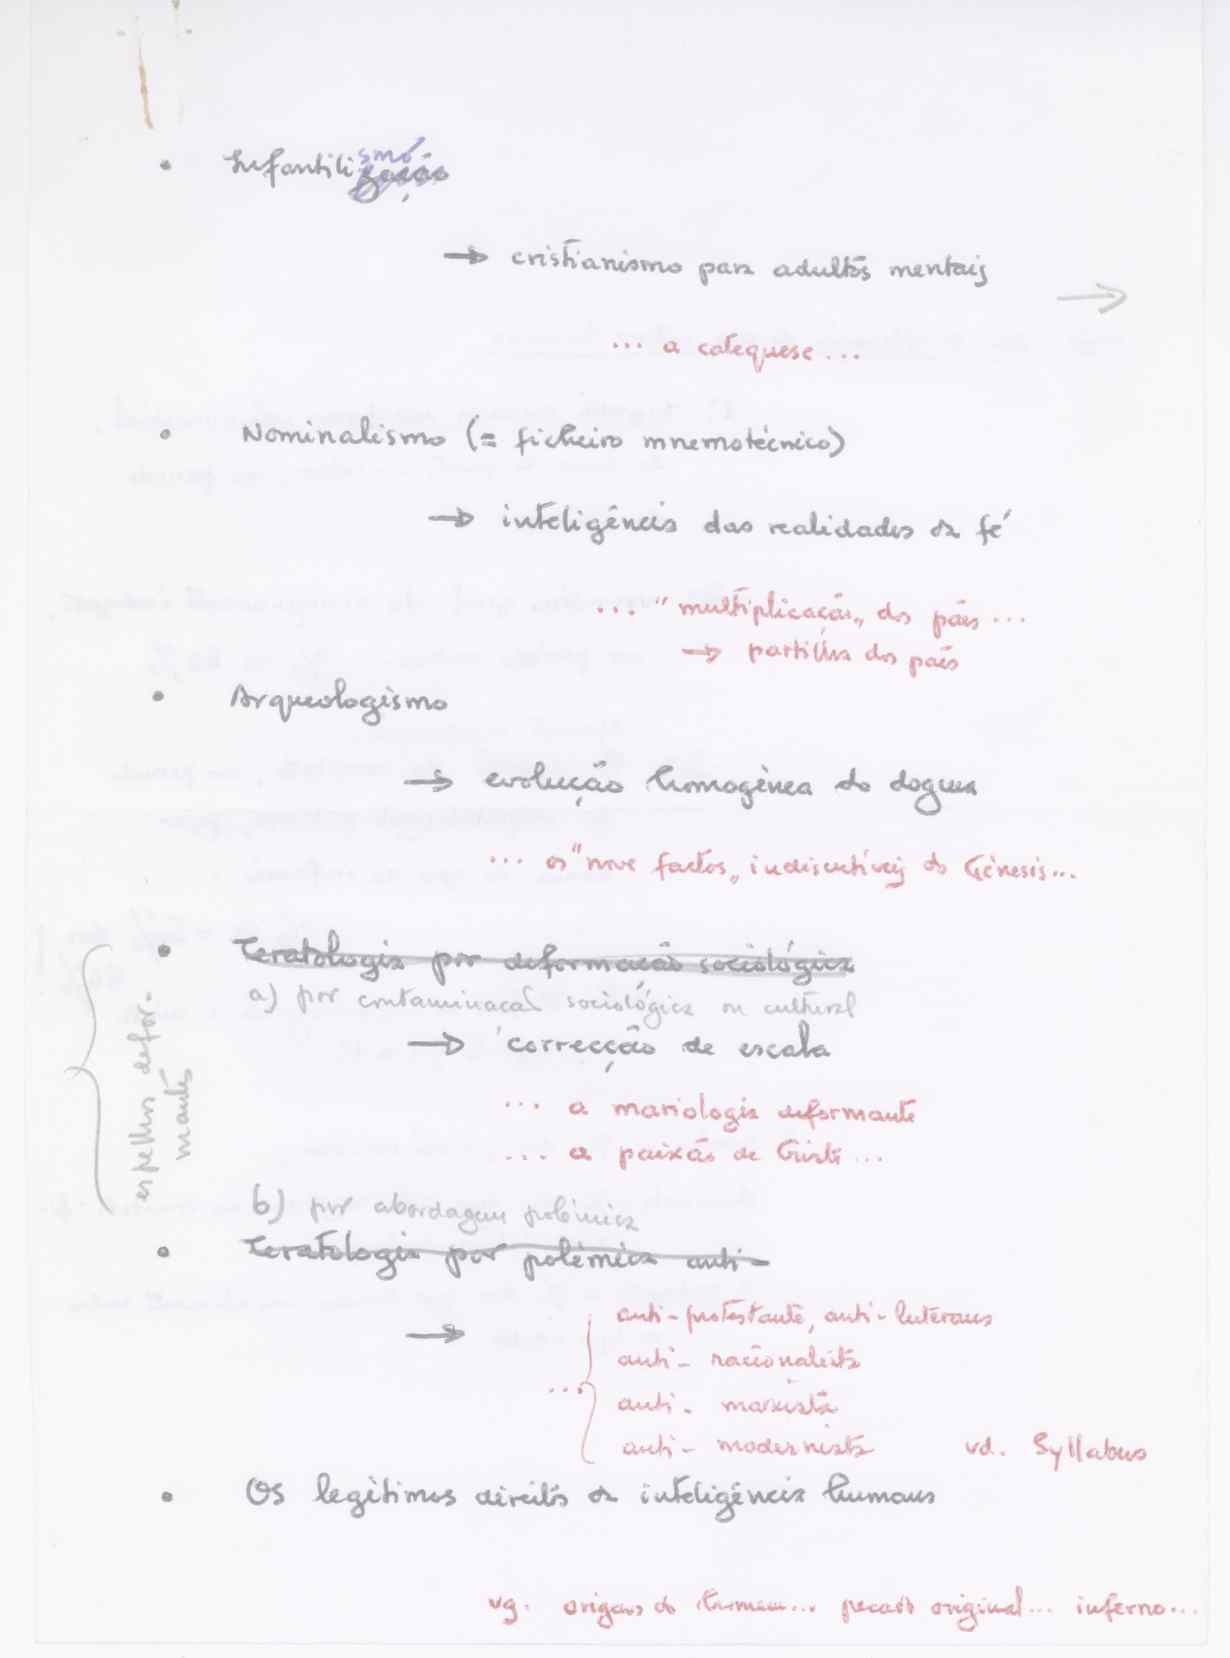 • Infantilismo
→ cristianismo para adultos mentais →
... a catequese ...
• Nominalismo (= ficheiro mnemotécnico)
→ inteligência das realidades da fé
... "multiplicação" dos pães ...
→ partilha dos pães
• Arqueologismo
→ evolução homogénea do dogma
... os "nove factos" indiscutíveis do Génesis ...
• Teratologia por deformação sociológica
a) por contaminação sociológica ou cultural
→ correcção de escala
... a mariologia deformante
... a paixão de Cristo ...
espelhos defor-
mantes
b) por abordagem polémica
• Teratologia por polémica anti-
→
... anti-protestante, anti-luterana
anti-racionalista
anti-marxista
anti-modernista vd. Syllabus
• Os legítimos direitos da inteligência humana
vg. origens do homem... pecado original... inferno...